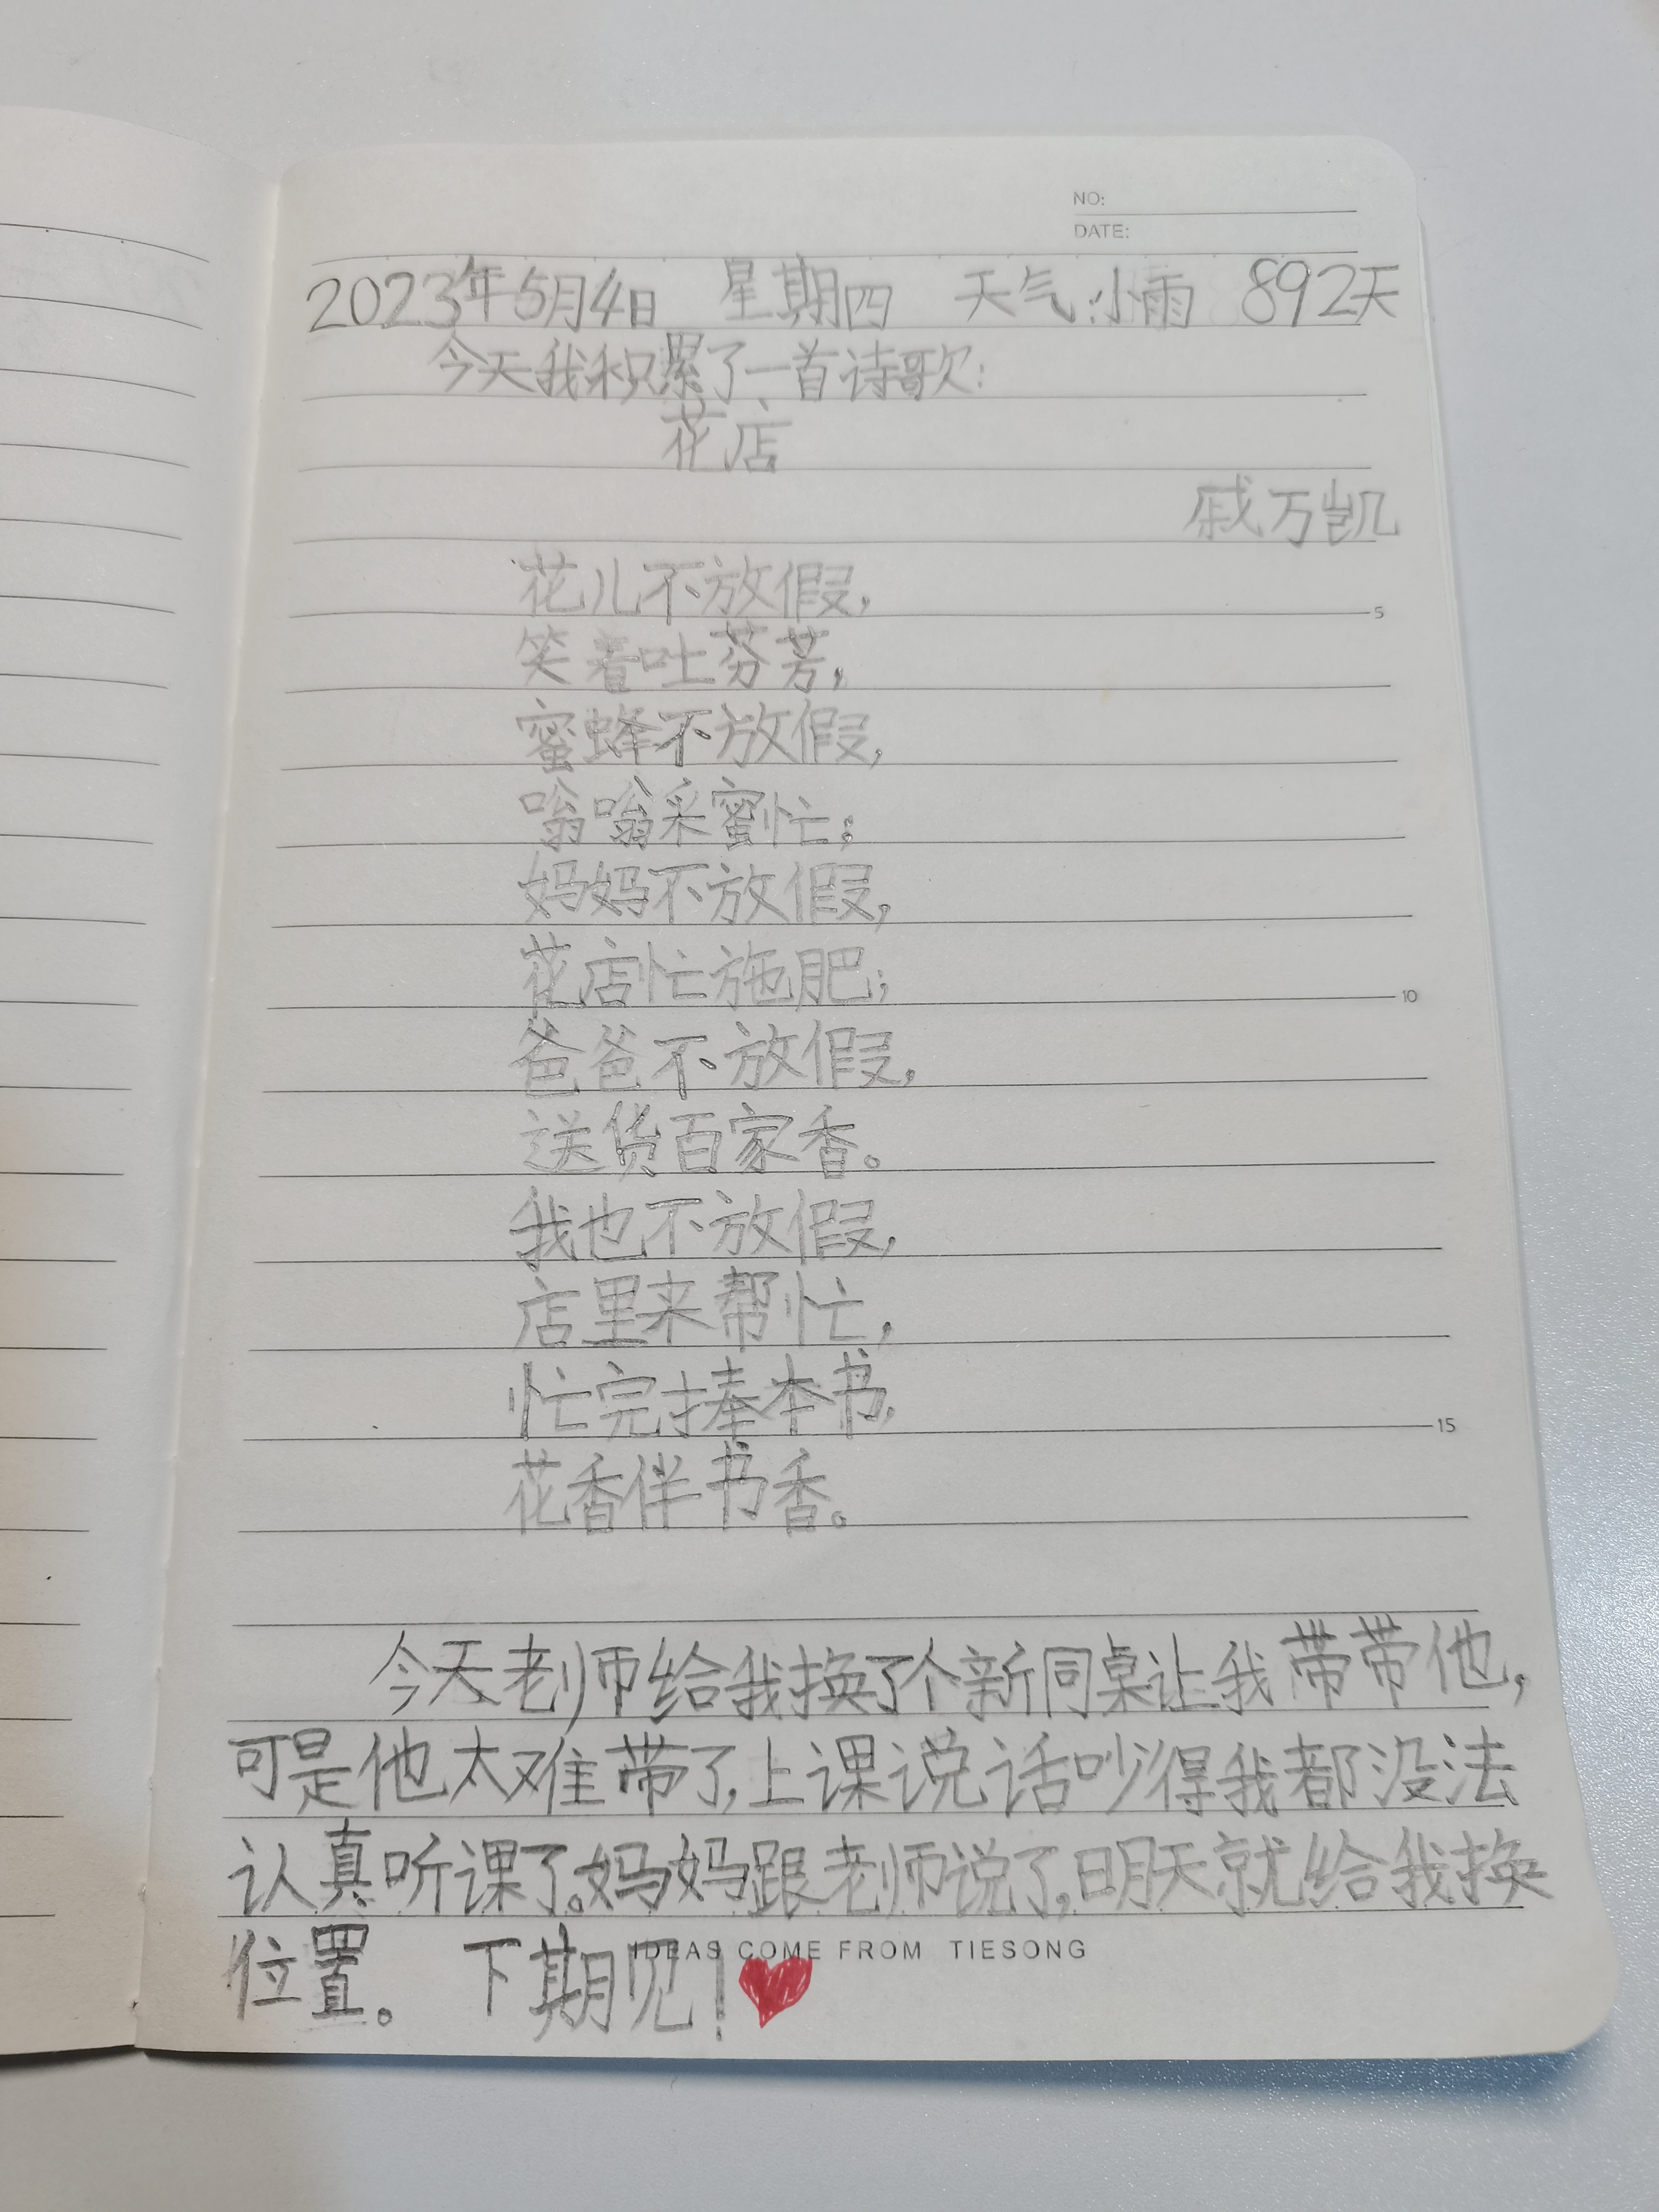 NO:
DATE:
2023年5月4日 星期四 天气:小雨 892天
今天我积累了一首诗歌:
花店
戚万凯
花儿不放假,
5
笑着吐芬芳,
蜜蜂不放假,
嗡嗡采蜜忙;
妈妈不放假,
花店忙施肥;
10
爸爸不放假,
送货百家香。
我也不放假,
店里来帮忙,
忙完捧本书,
15
花香伴书香。
今天老师给我换了个新同桌让我带带他,
可是他太难带了,上课说话吵得我都没法
认真听课了。妈妈跟老师说了,明天就给我换
位置。 下期见!
IDEAS COME FROM TIESONG